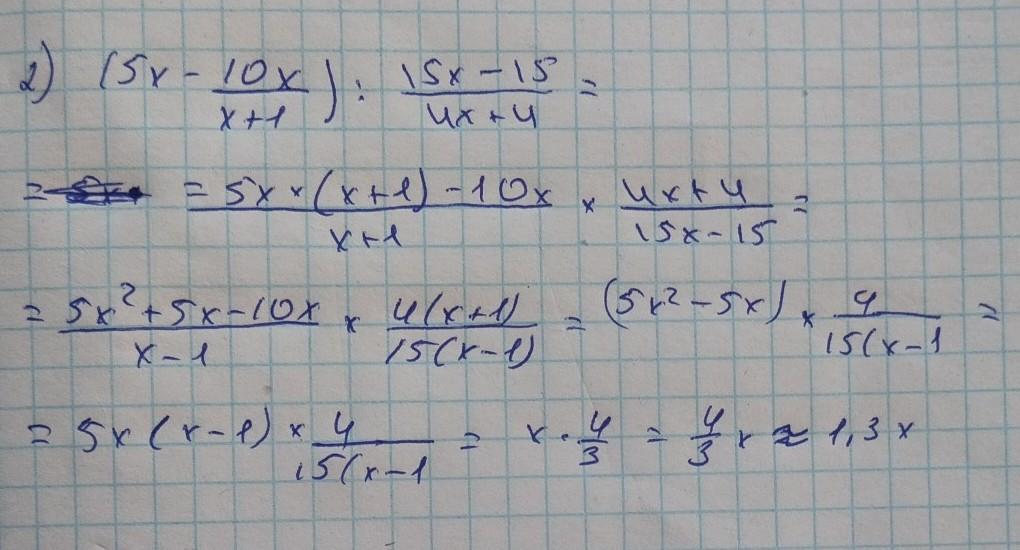 2) (5x - 10x/(x+1)) : (15x-15)/(4x+4) =
= = (5x × (x+1) - 10x)/(x+1) × (4x+4)/(15x-15) =
= (5x²+5x-10x)/(x-1) × 4(x+1)/(15(x-1)) = (5x²-5x) × 4/(15(x-1 =
= 5x(x-1) × 4/(15(x-1 = x · 4/3 = 4/3 x ≈ 1,3x